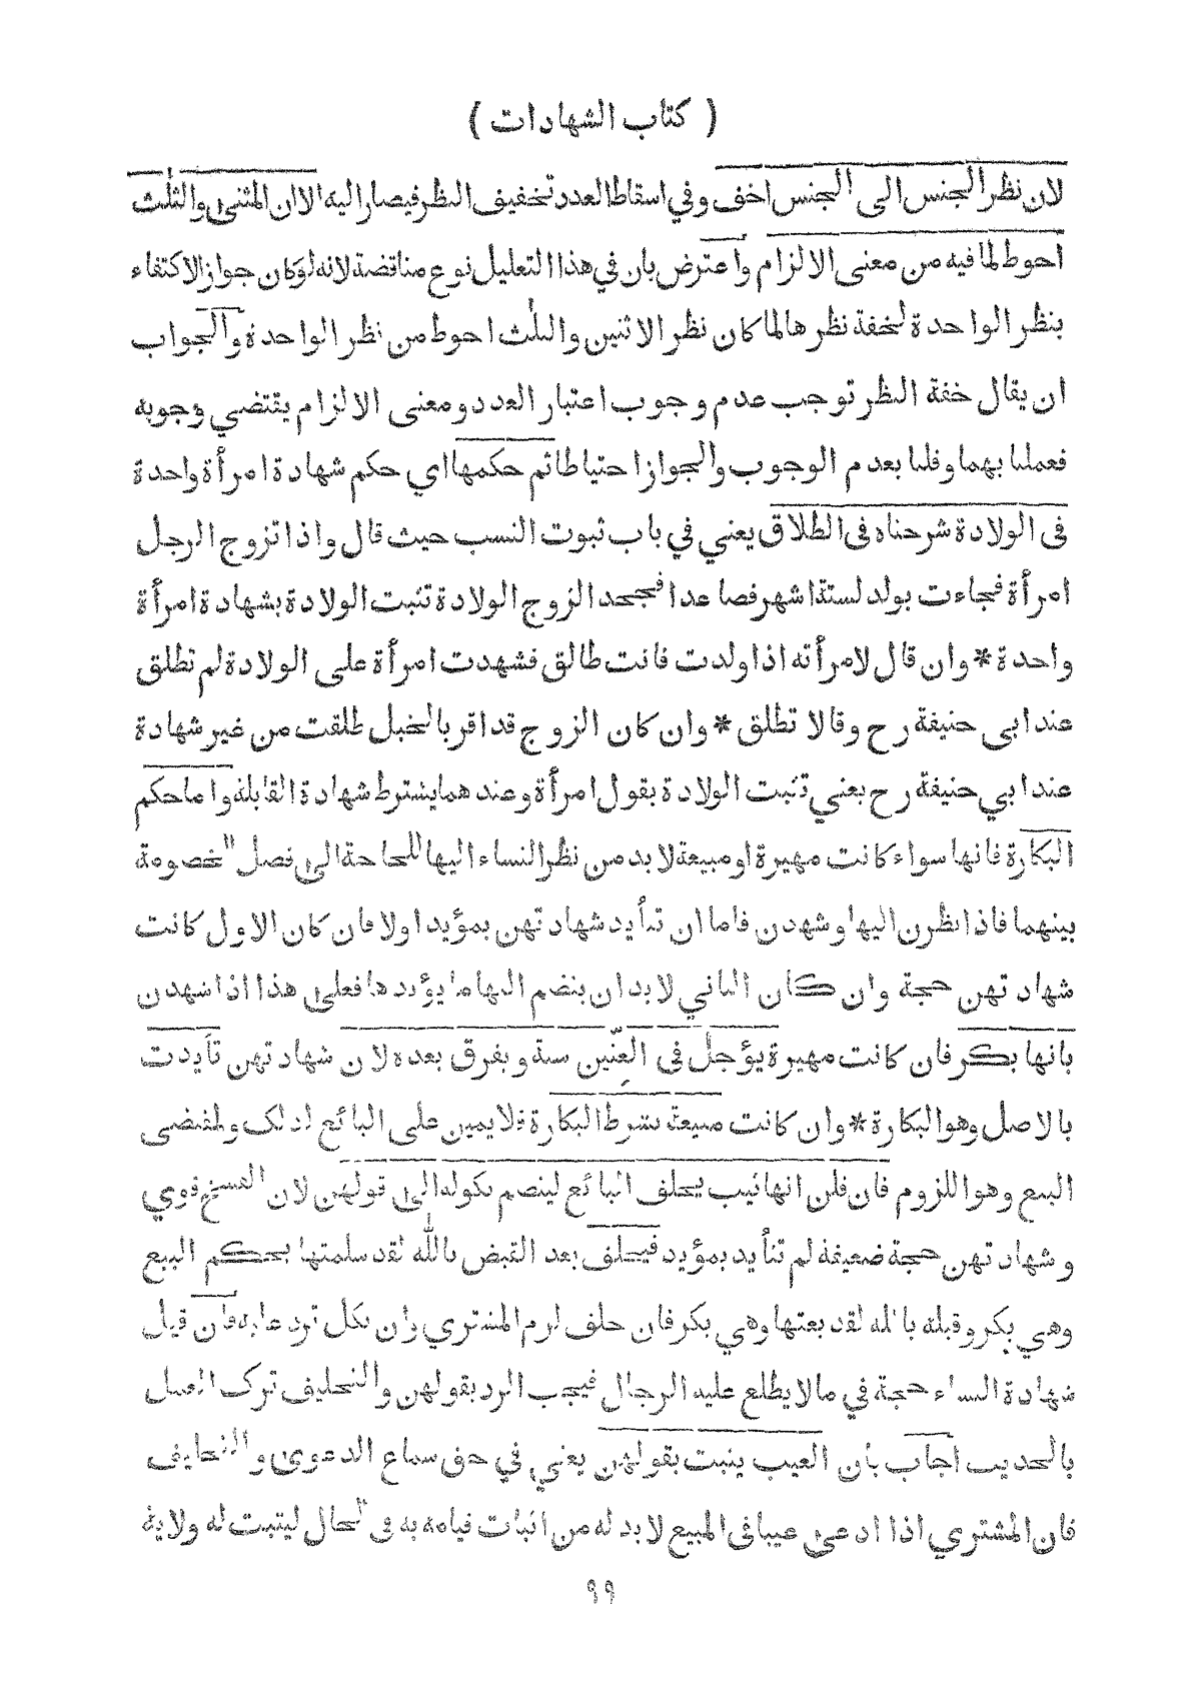 ( كتاب الشهادات )
لان نظر الجنس الى الجنس اخف وفي اسقاط العدد تخفيف النظر فيصار اليه الا ان المثنى والثلث
احوط لما فيه من معنى الالزام واعترض بان في هذا التعليل نوع مناقضة لانه لوكان جواز الاكتفاء
بنظر الواحدة لخفة نظرها لما كان نظر الاثنين والثلث احوط من نظر الواحدة والجواب
ان يقال خفة النظر توجب عدم وجوب اعتبار العدد ومعنى الالزام يقتضي وجوبه
فعملنا بهما وقلنا بعدم الوجوب والجواز احتياطا ثم حكمها اي حكم شهادة امرأة واحدة
في الولادة شرحناه في الطلاق يعني في باب ثبوت النسب حيث قال واذا تزوج الرجل
امرأة فجاءت بولد لستة اشهر فصاعدا فجحد الزوج الولادة تثبت الولادة بشهادة امرأة
واحدة * وان قال لامرأته اذا ولدت فانت طالق فشهدت امرأة على الولادة لم تطلق
عند ابى حنيفة رح وقالا تطلق * وان كان الزوج قد اقر بالحبل طلقت من غير شهادة
عند ابي حنيفة رح يعني تثبت الولادة بقول امرأة وعندهما يشترط شهادة القابلة واما حكم
البكارة فانها سواء كانت مهيرة او مبيعة لا بد من نظر النساء اليها للحاجة الى فصل الخصومة
بينهما فاذا نظرن اليها وشهدن فاما ان تتأيد شهادتهن بمؤيد اولا فان كان الاول كانت
شهادتهن حجة وان كان الثاني لا بد ان ينضم اليها ما يؤيدها فعلى هذا اذا شهدن
بانها بكر فان كانت مهيرة يؤجل فى العنّين سنة ويفرق بعده لان شهادتهن تأيدت
بالاصل وهو البكارة * وان كانت مبيعة بشرط البكارة فلا يمين على البائع لذلك ولمقتضى
البيع وهو اللزوم فان قلن انها ثيب يحلف البائع لينضم نكوله الى قولهن لان الفسخ قوي
وشهادتهن حجة ضعيفة لم تتأيد بمؤيد فيحلف بعد القبض بالله لقد سلمتها بحكم البيع
وهي بكر وقبله بالله لقد بعتها وهي بكر فان حلف لزم المشتري وان نكل ترد عليه فان قيل
شهادة النساء حجة في ما لا يطلع عليه الرجال فيجب الرد بقولهن والتحليف ترك العمل
بالحديث اجاب بان العيب يثبت بقولهن يعني في حق سماع الدعوى والتحليف
فان المشتري اذا ادعى عيبا فى المبيع لا بد له من اثبات قيامه به في الحال ليثبت له ولاية
٩٩